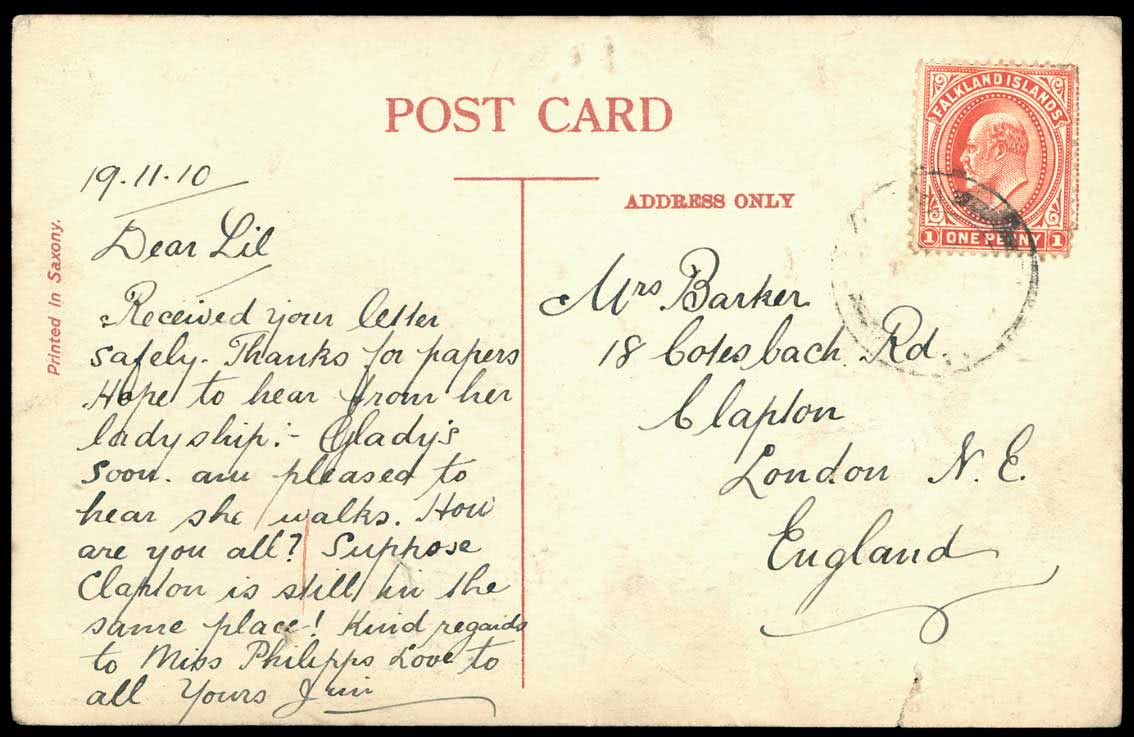 POST CARD
FALKLAND ISLANDS
1 ONE PENNY 1
Printed In Saxony.
19.11.10
Dear Lil
Received your letter
safely. Thanks for papers
Hope to hear from her
ladyship:- Glady's
soon. am pleased to
hear she walks. How
are you all? Suppose
Clapton is still in the
same place! Kind regards
to Miss Philipps Love to
all Yours Jim
ADDRESS ONLY
Mrs Barker
18 Cotesbach Rd
Clapton
London N.E.
England